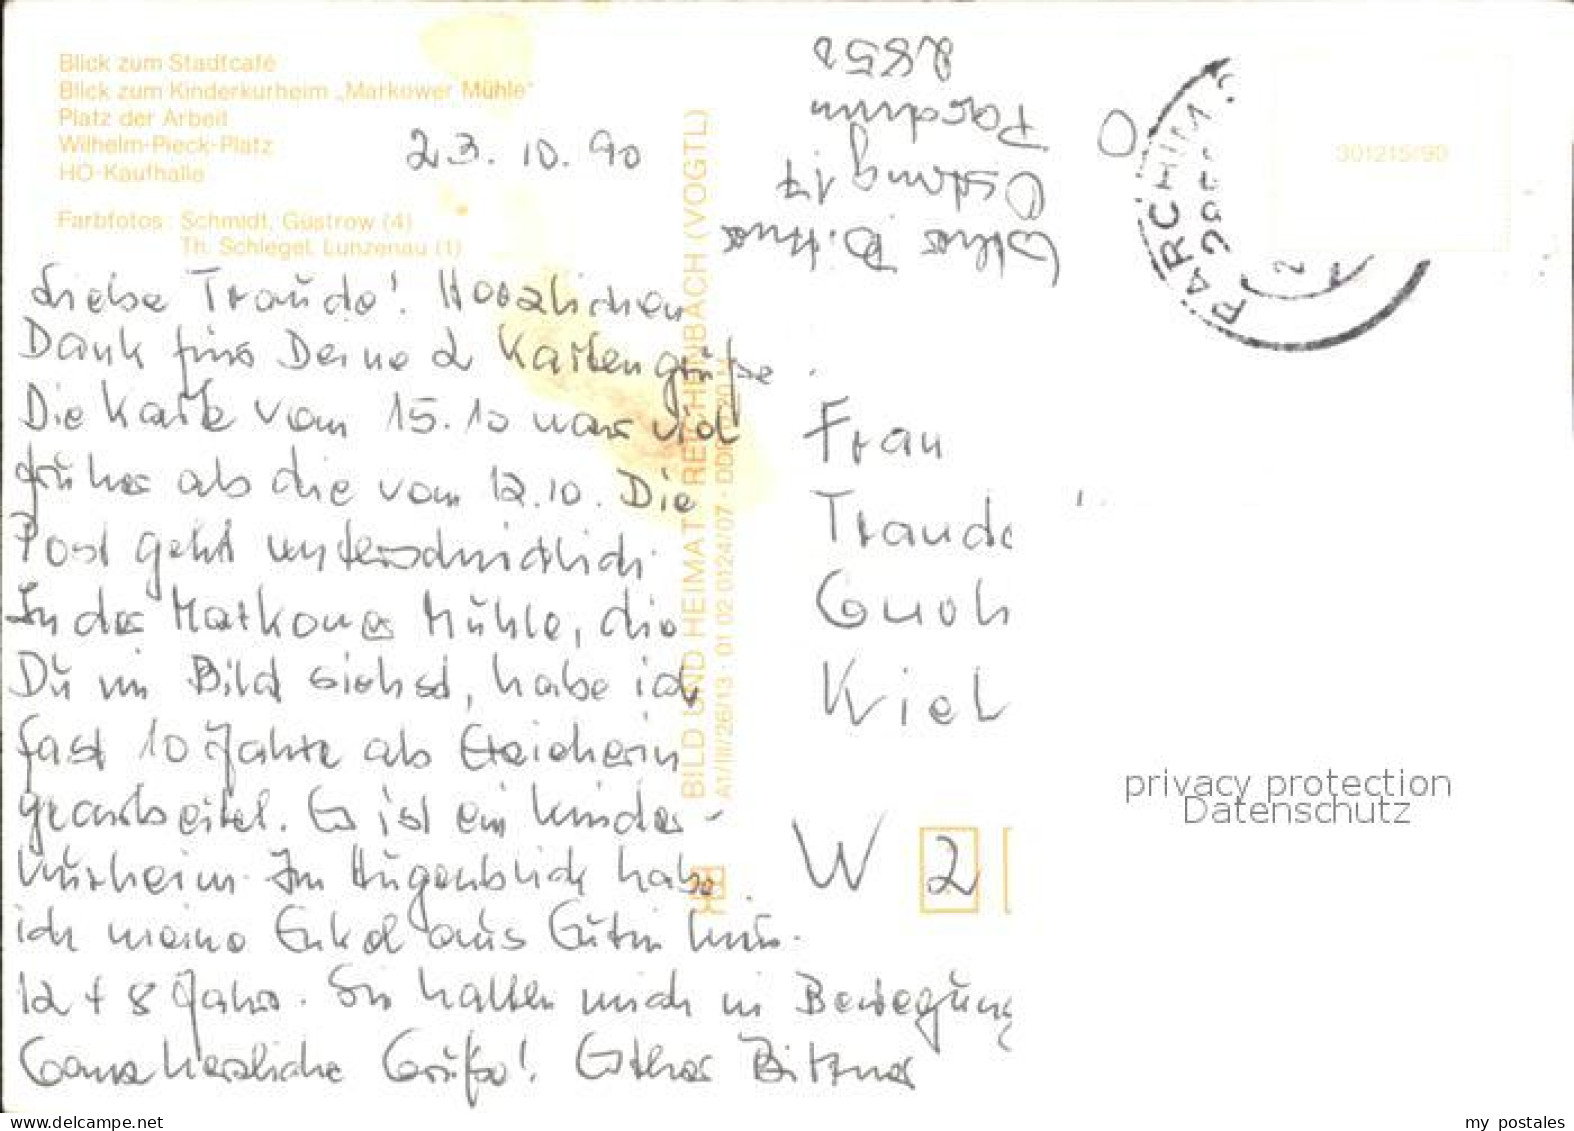 Blick zum Stadtcafé
Blick zum Kinderkurheim „Markower Mühle"
Platz der Arbeit
Wilhelm-Pieck-Platz
HO-Kaufhalle
Farbfotos: Schmidt, Güstrow (4)
Th. Schlegel, Lunzenau (1)
23. 10. 90
Liebe Traude! Herzlichen
Dank für Deine 2 Kartengrüße
Die Karte vom 15.10 war viel
früher als die vom 12.10. Die
Post geht unterschiedlich
In der Markower Mühle, die
Du im Bild siehst, habe ich
fast 10 Jahre als Erzieherin
gearbeitet. Es ist ein Kinder-
kurheim. Im Augenblick habe
ich meine Enkel aus Eutin hier.
12 + 8 Jahre. Sie halten mich in Bewegung
Ganz herzliche Grüße! Esther Bittner
BILD UND HEIMAT REICHENBACH (VOGTL)
A1/III/26/13 · 01 02 0124/07 · DDR
Esther Bittner
Ostring 17
Parchim
2850
PARCHIM
301215/90
Frau
Traude
Kiel
W 2
privacy protection
Datenschutz
my postales
www.delcampe.net